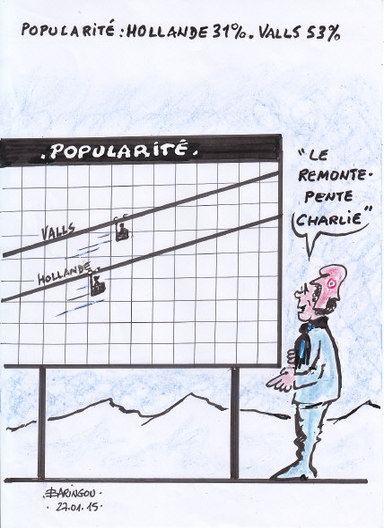 POPULARITÉ : HOLLANDE 31%. VALLS 53%
.POPULARITÉ.
"LE
REMONTE-
PENTE
CHARLIE"
VALLS
HOLLANDE
BARINGOU.
. 27.01.15.